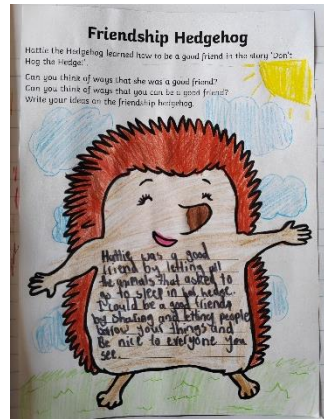 Friendship Hedgehog
Hattie the Hedgehog learned how to be a good friend in the story 'Don't
Hog the Hedge!'.
Can you think of ways that she was a good friend?
Can you think of ways that you can be a good friend?
Write your ideas on the friendship hedgehog.
Hattie was a good
friend by letting all
the animals that asked to
go to sleep in her hedge.
I could be a good friend
by sharing and letting people
borow your things and
Be nice to everyone you
see.